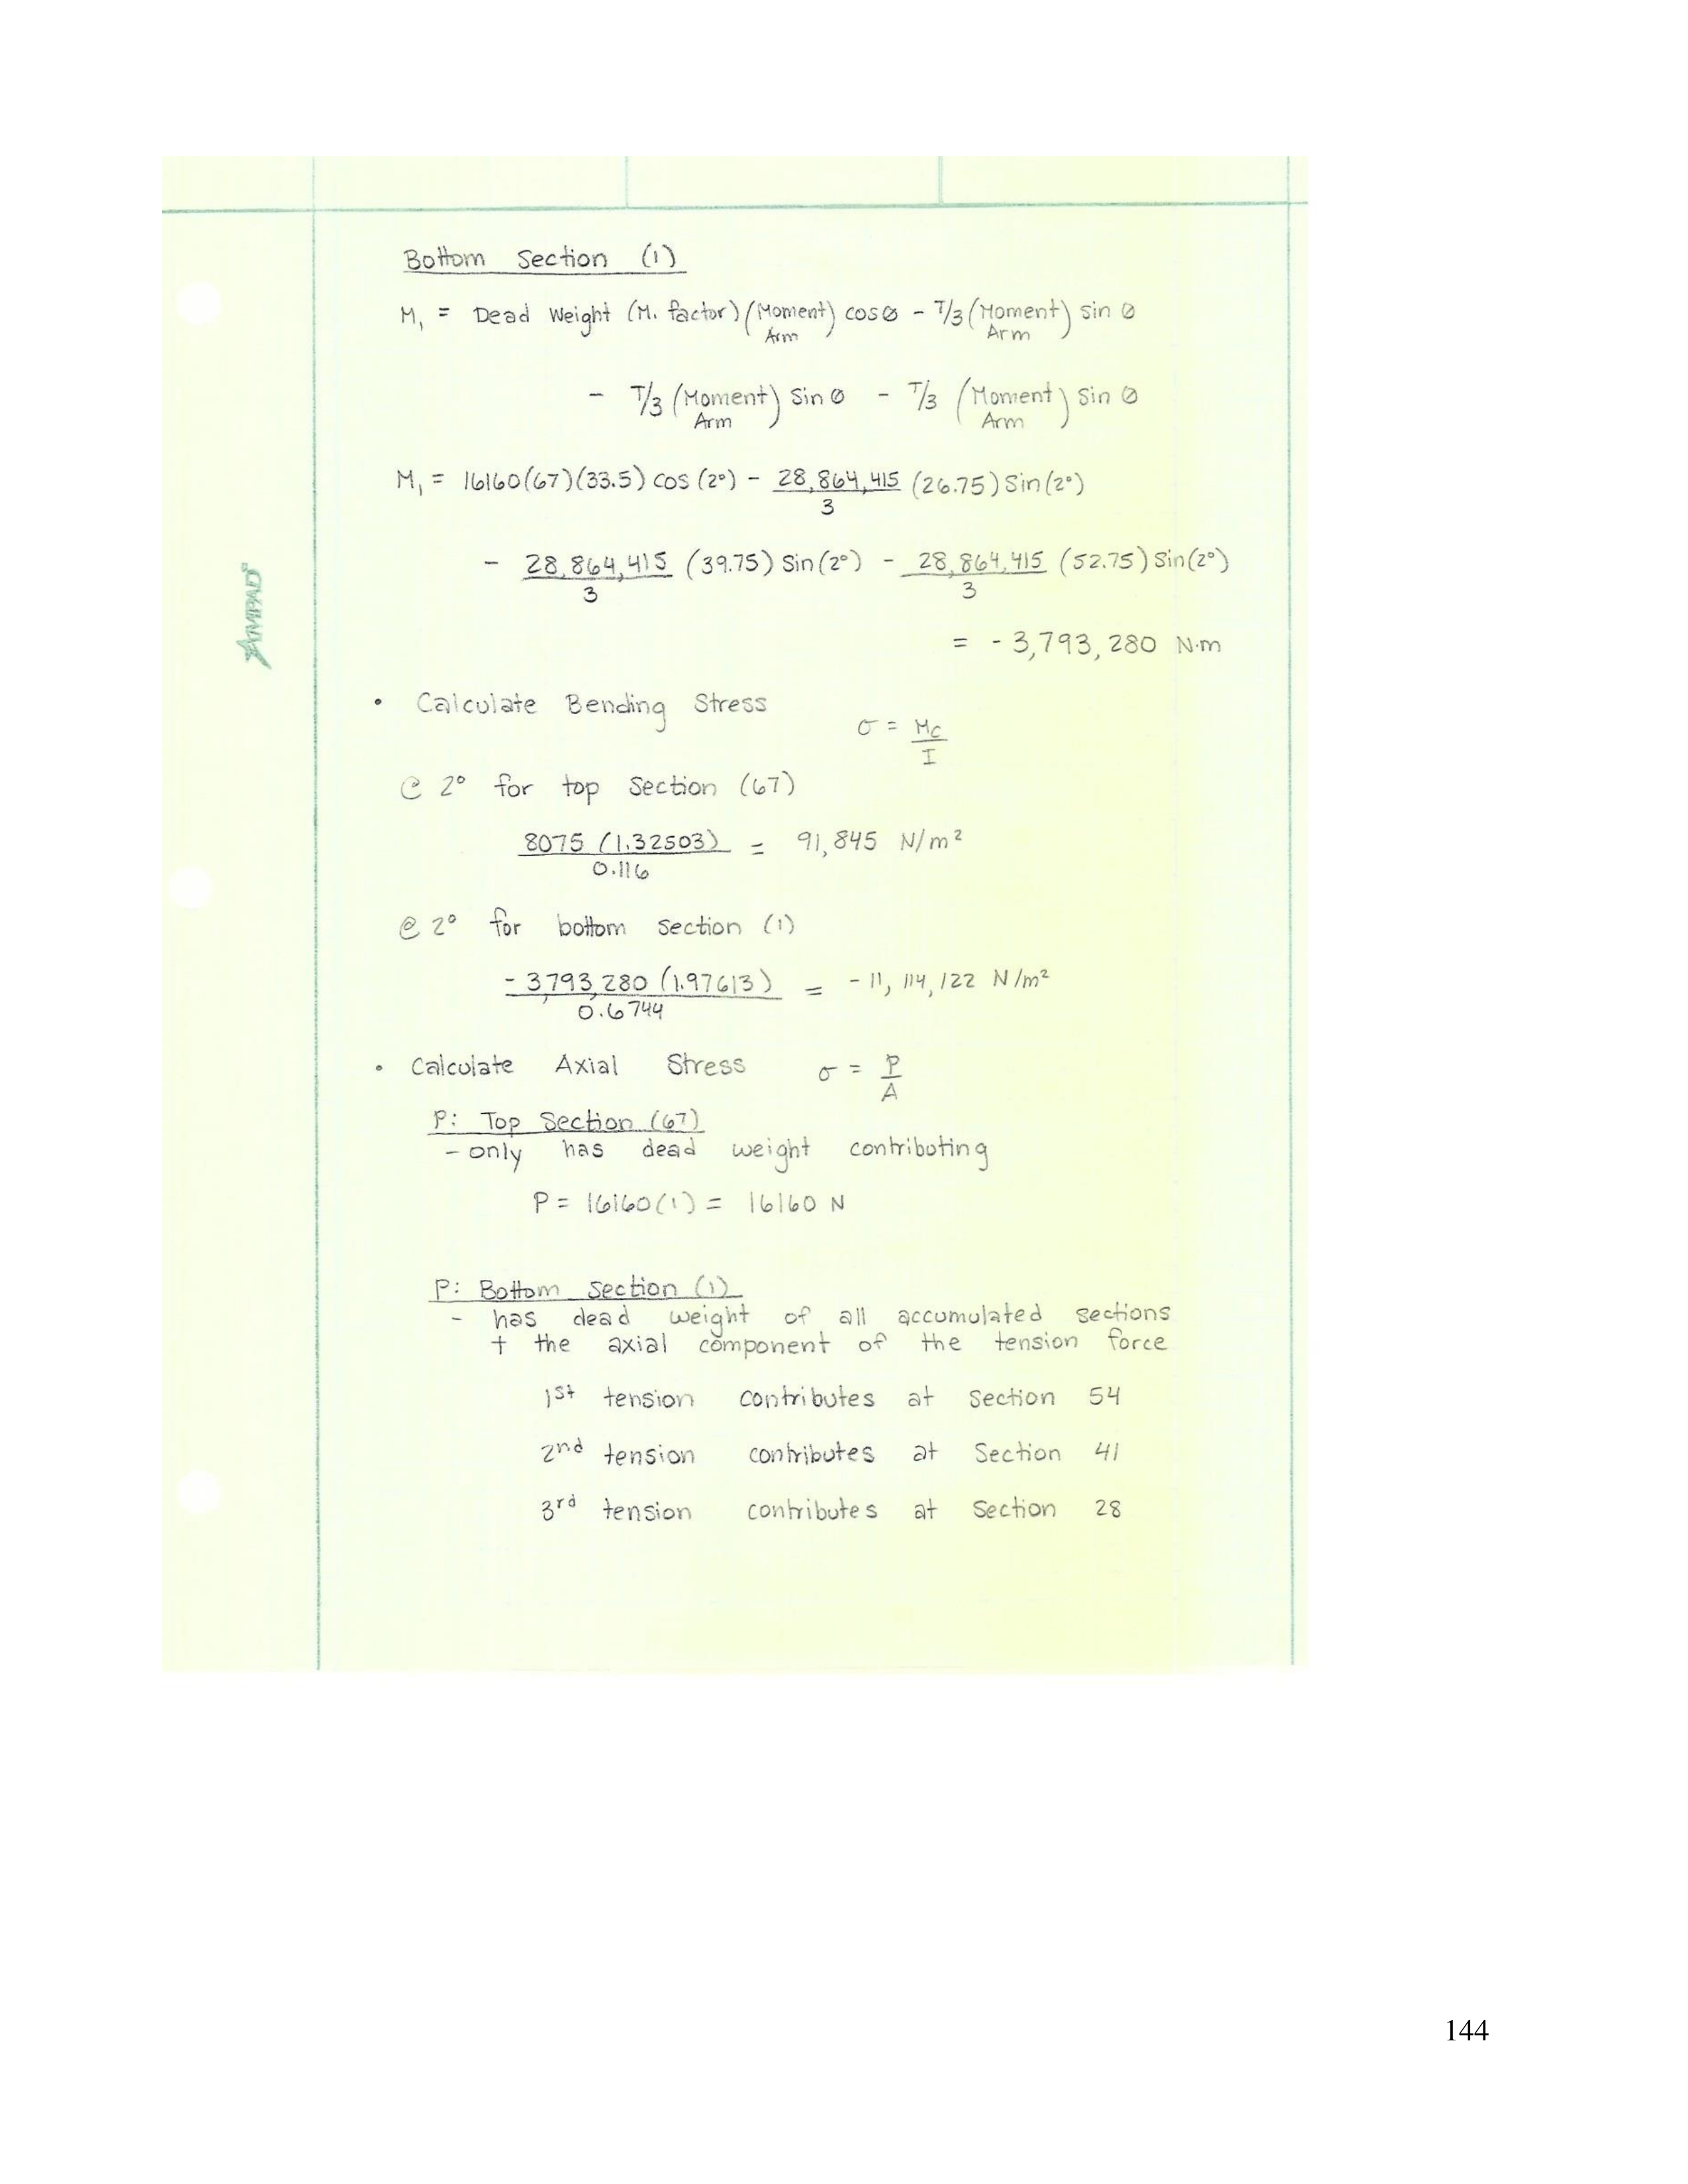 Bottom Section (1)
M₁ = Dead Weight (M. factor) (Moment Arm) cos Ø - T/3 (Moment Arm) sin Ø
- T/3 (Moment Arm) Sin Ø - T/3 (Moment Arm) Sin Ø
M₁ = 16160(67)(33.5) cos (2°) - 28,864,415/3 (26.75) Sin(2°)
- 28,864,415/3 (39.75) Sin(2°) - 28,864,415/3 (52.75) Sin(2°)
= -3,793,280 N·m
AMPAD
• Calculate Bending Stress σ = Mc/I
@ 2° for top Section (67)
8075 (1.32503)/0.116 = 91,845 N/m²
@ 2° for bottom section (1)
-3,793,280 (1.97613)/0.6744 = -11,114,122 N/m²
• Calculate Axial Stress σ = P/A
P: Top Section (67)
- only has dead weight contributing
P = 16160(1) = 16160 N
P: Bottom Section (1)
- has dead weight of all accumulated sections
+ the axial component of the tension force
1st tension contributes at Section 54
2nd tension contributes at Section 41
3rd tension contributes at Section 28
144